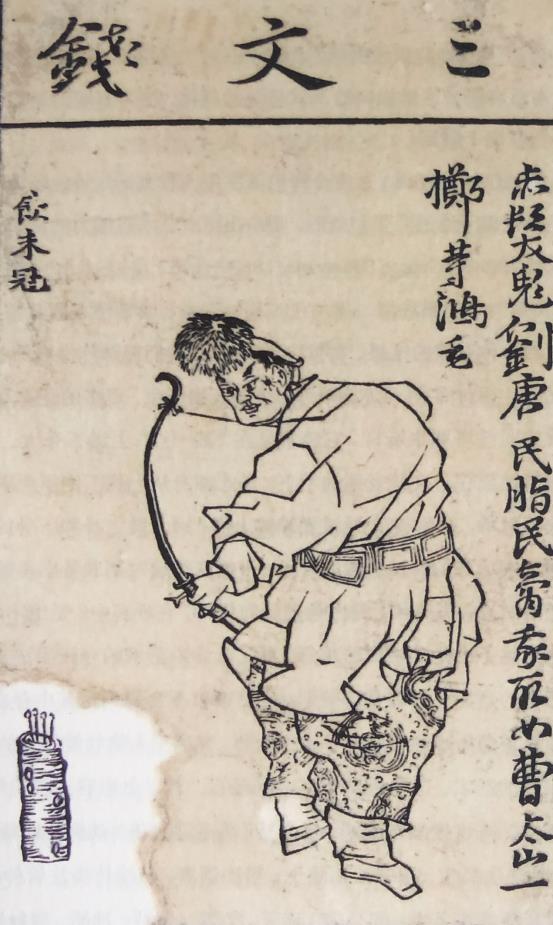 三文錢
赤髮鬼劉唐 民脂民膏我取汝曹太山一
擲等鴻毛
飲未冠